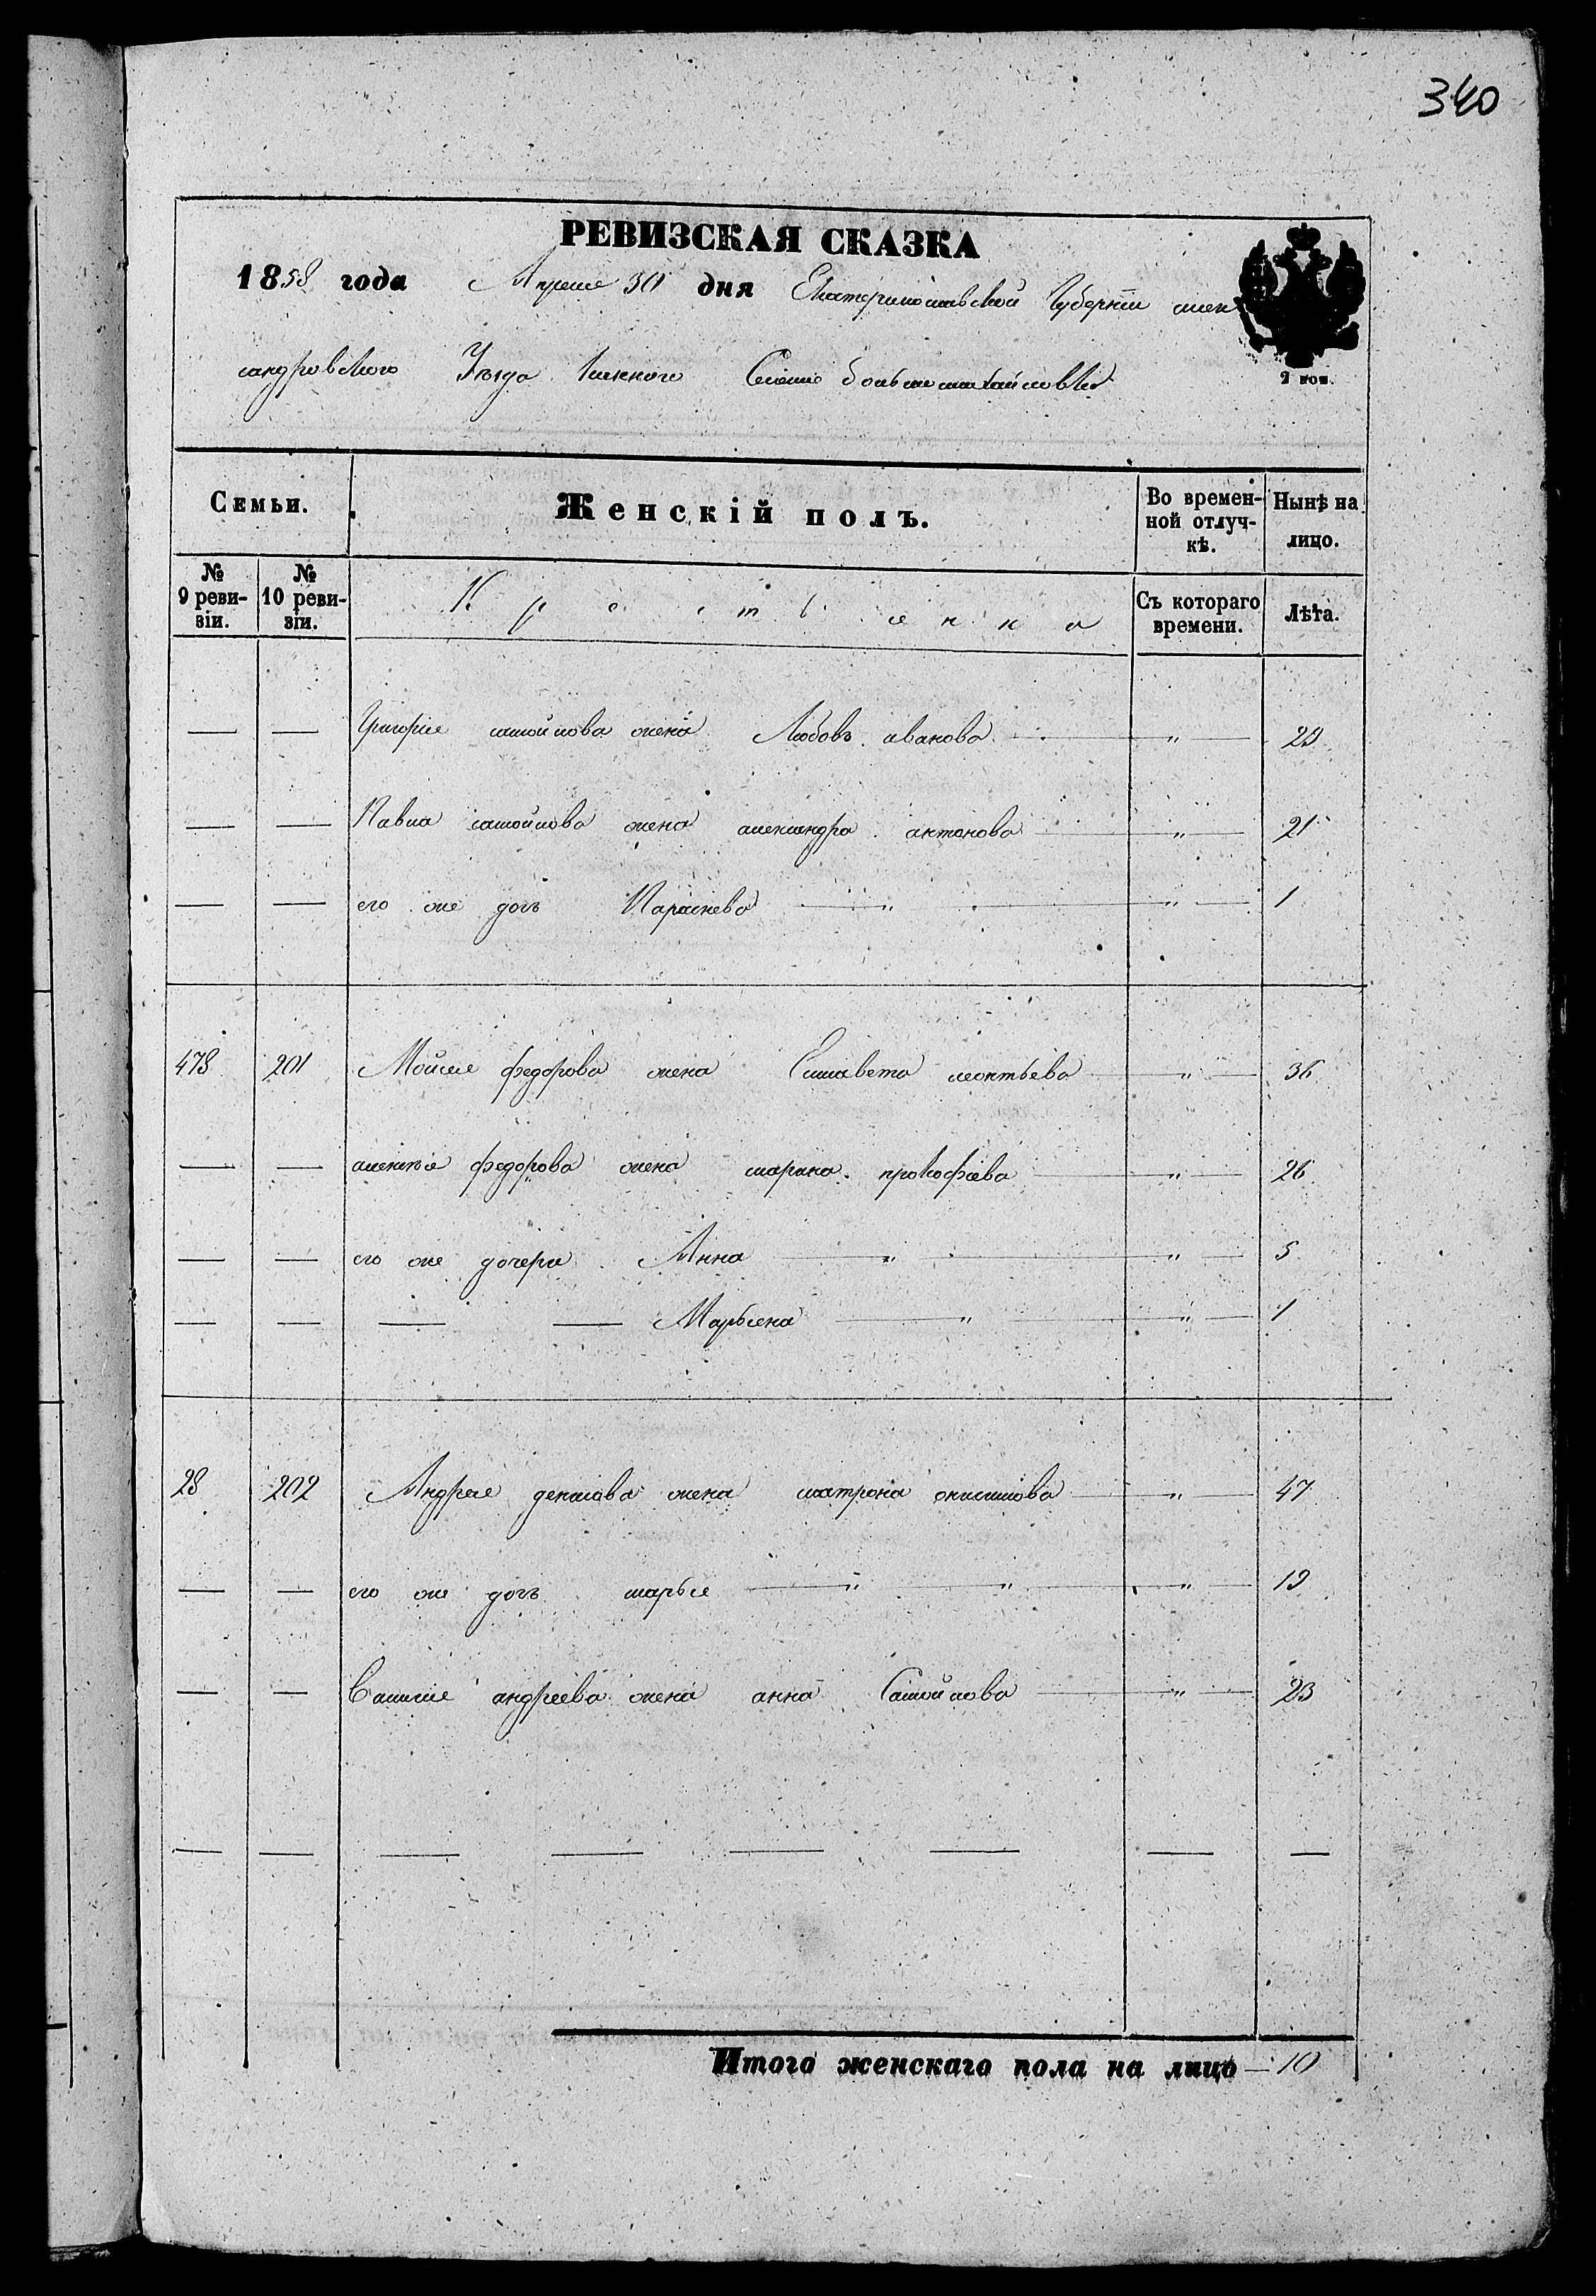 340
РЕВИЗСКАЯ СКАЗКА
1858 года Апреля 30 дня Екатеринославской Губерніи алек
сандровского Уезда Казенного Селенія большемихайловки
2 коп.
Семьи. Женскій полъ. Во времен- Нынѣ на
ной отлуч- лицо.
кѣ.
№ № К р е с т ь я н к а Съ котораго Лѣта.
9 реви- 10 реви- времени.
зіи. зіи.
— — Григория самойлова жена Любовь иванова — " — 29
— — Павла самойлова жена александра антонова — " — 21
— — его же дочь Параскева — " — " — 1
478 201 Мойсея федорова жена Елисавета леонтьева — " — 36
— — алексея федорова жена марина прокофиева — " — 26
— — его же дочери Анна — " — " — 5
— — — — Марьяна — " — " — 1
28 202 Андрея денисова жена матрона онисимова — " — 47
— — его же дочь марья — " — " — " — 19
— — Василия андреева жена анна Самойлова — " — 23
— — — — — — — —
Итого женскаго пола на лицо — 10